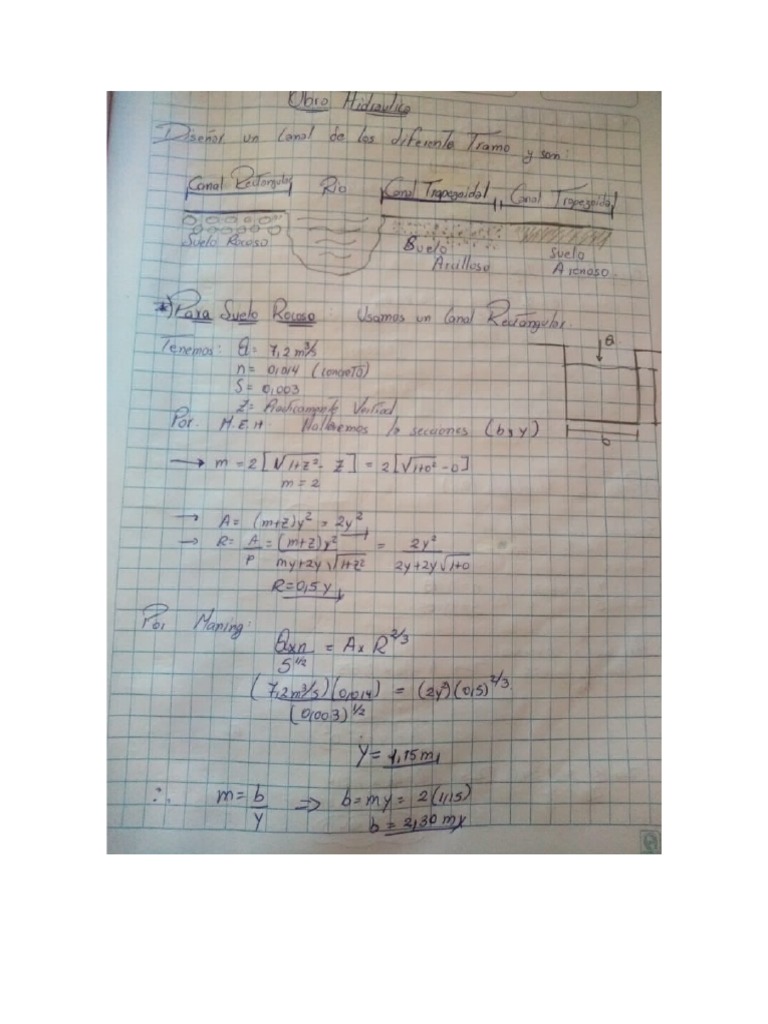 Obra Hidraulica
Diseñar un Canal de los diferente Tramo y son:
Canal Rectangular Rio Canal Trapezoidal Canal Trapezoidal
Suelo Rocoso Suelo Arcilloso Suelo Arenoso
*) Para Suelo Rocoso: Usamos un Canal Rectangular.
Tenemos: Q = 7,2 m³/s
Q
n = 0,014 (concreto)
S = 0,003
Z = Vertical
Por. M.E.H. Hallaremos la secciones (b, y)
b
→ m = 2[√1+Z² - Z] = 2[√1+0² - 0]
m = 2
→ A = (m+z)y² = 2y²
→ R = A/P = (m+z)y² / my+2y√1+z² = 2y² / 2y+2y√1+0
R = 0,5 y
Por Maning:
Qxn / S^1/2 = A x R^2/3
(7,2 m³/s)(0,014) / (0,003)^1/2 = (2y²)(0,5)^2/3
y = 1,15 m
∴ m = b/y ⇒ b = my = 2(1,15)
b = 2,30 m